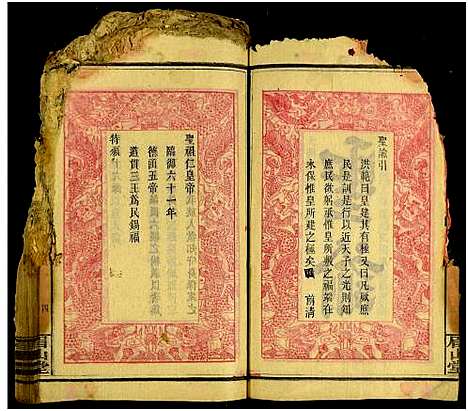 聖諭引
洪範曰皇建其有極又曰凡厥庶
民是訓是行以近天子之光則知
庶民欲躬承惟皇所敷之福端在
永保惟皇所建之極矣
前清
聖祖仁皇帝
臨御六十一年
德涵五帝
道貫三王為民錫福
特頒
四
眉山堂
眉山堂